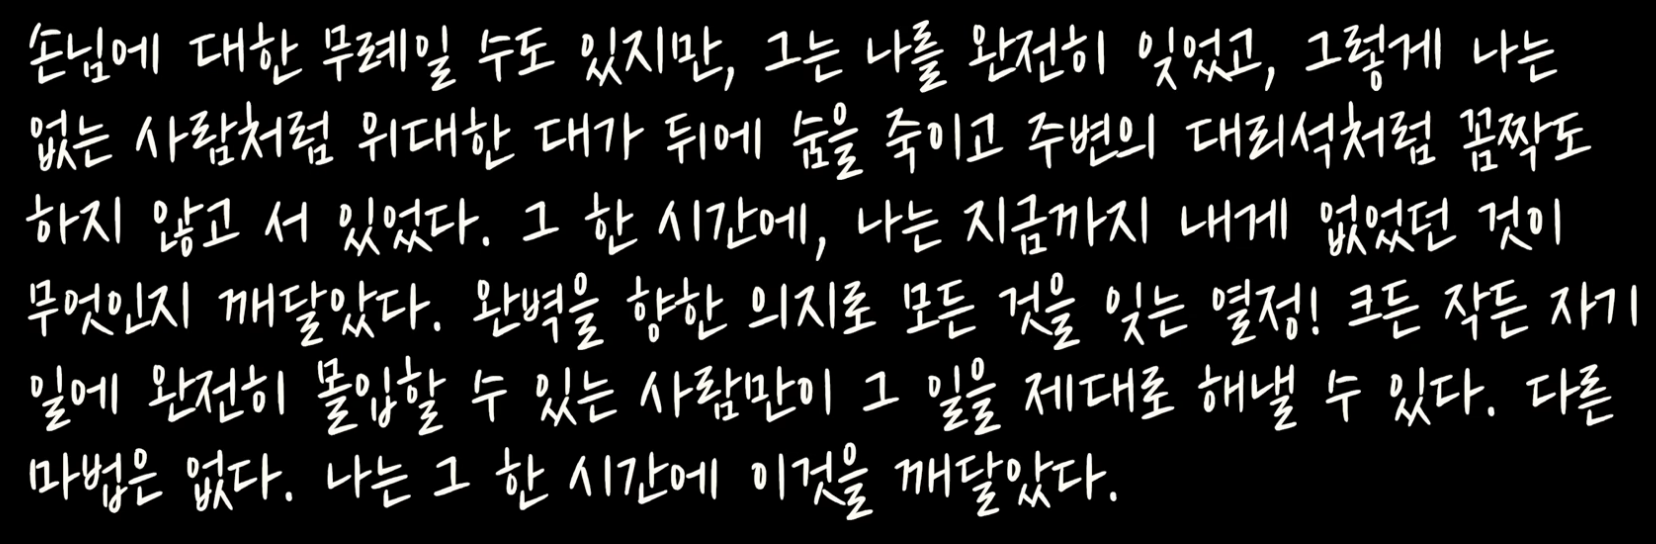 손님에 대한 무례일 수도 있지만, 그는 나를 완전히 잊었고, 그렇게 나는
없는 사람처럼 위대한 대가 뒤에 숨을 죽이고 주변의 대리석처럼 꼼짝도
하지 않고 서 있었다. 그 한 시간에, 나는 지금까지 내게 없었던 것이
무엇인지 깨달았다. 완벽을 향한 의지로 모든 것을 잊는 열정! 크든 작든 자기
일에 완전히 몰입할 수 있는 사람만이 그 일을 제대로 해낼 수 있다. 다른
마법은 없다. 나는 그 한 시간에 이것을 깨달았다.